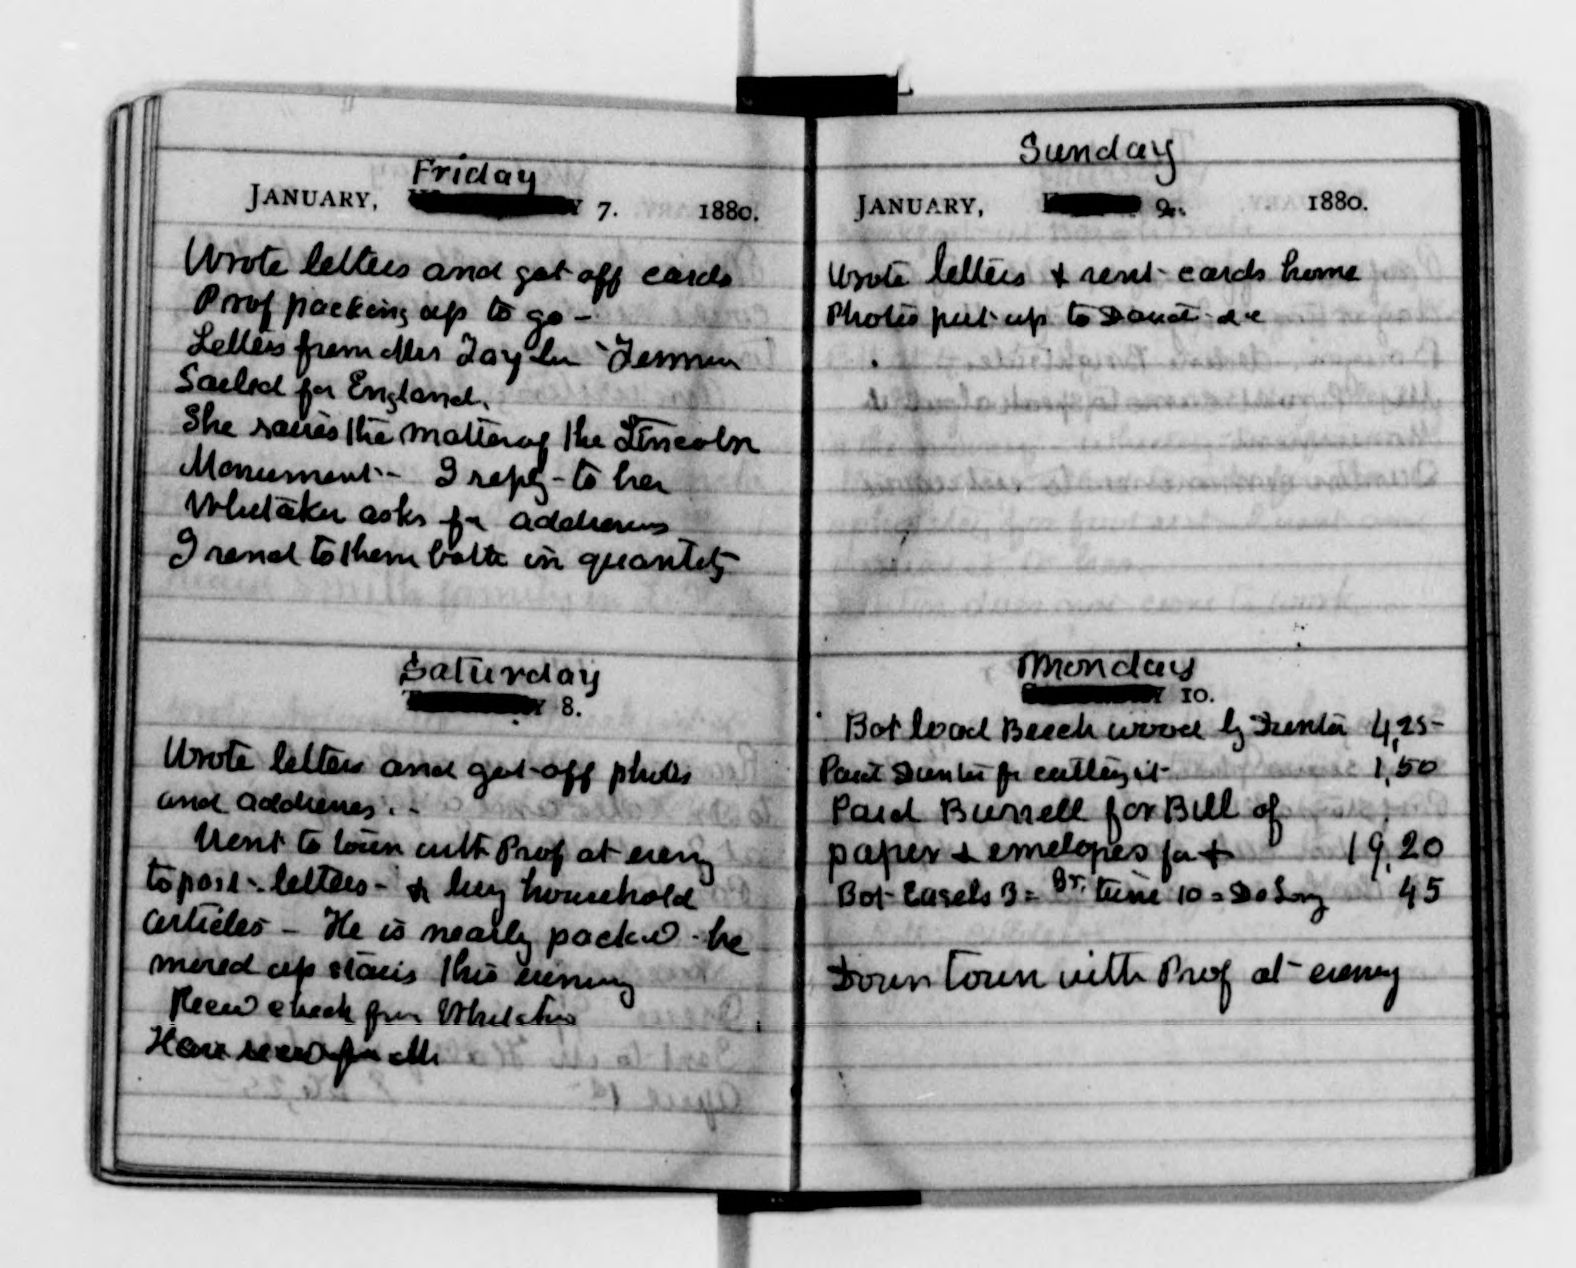 Friday
January, 7. 1880.
Wrote letters and got off cards
Prof packing up to go -
Letters from Mrs Taylor
Sailed for England.
She raises the matter of the Lincoln
Monument - I reply - to her
Whitaker asks for addresses
I send to them both in quantity
Saturday
8.
Wrote letters and got off photos
and addresses. -
Went to town with Prof at eveng
to post letters - & buy household
articles - He is nearly packed - he
moved up stairs this evening
Recd check from
Have recd for
Sunday
January, 9. 1880.
Wrote letters & sent cards home
Photos put up to
Monday
10.
Bot load Beech wood by 4,25-
Paid for cutting it 1,50
Paid Burrell for Bill of
paper & envelopes for + 19,20
Bot Easels 3 = 10 = 45
Down town with Prof at eveng